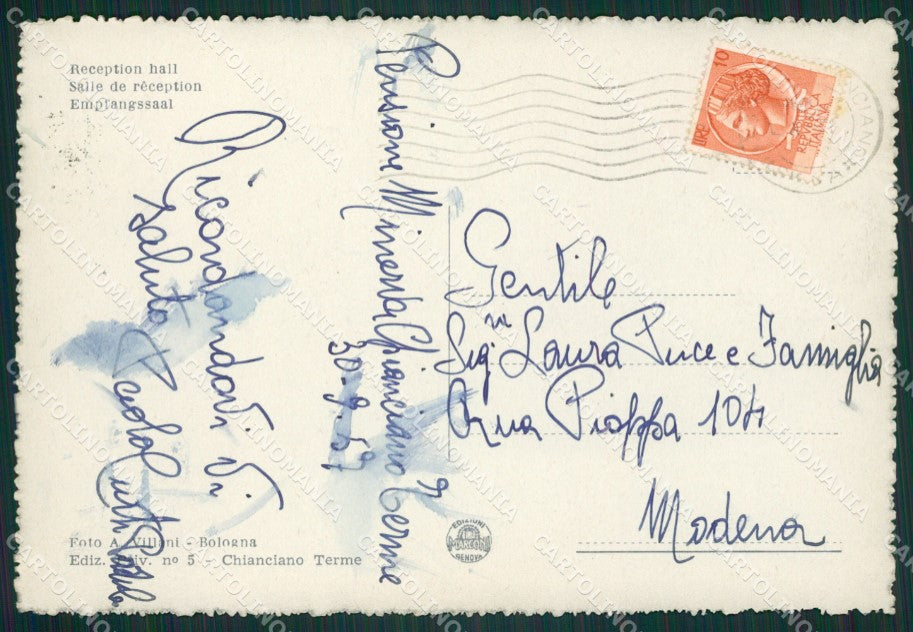 Reception hall
Salle de réception
Empfangssaal
Ricordandovi Vi
Saluto Paola
Pensione Minerva Chianciano Terme
30.9.59
LIRE 10
POSTE
REPVBBLICA
ITALIANA
Gentile
Sig.ra Laura Puce e Famiglia
Pioppa 104
Modena
Foto A. Villani - Bologna
Ediz. Div. nº 5 - Chianciano Terme
EDIZIONI
MARCONI
GENOVA
CARTOLINOMANIA